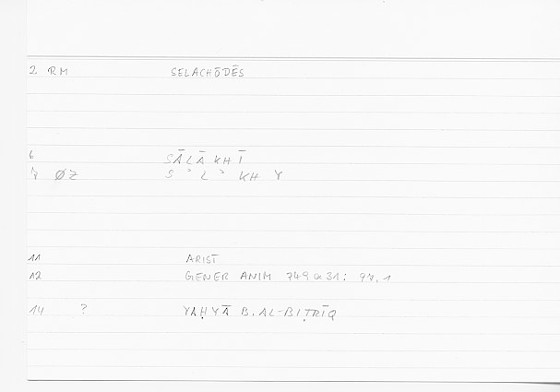 2 RM SELACHŌDĒS
6 SĀLĀKHĪ
7 ØZ S ʾ L ʾ KH Y
11 ARIST
12 GENER ANIM 749 a 31: 97,1
14 ? YAḤYĀ B. AL-BIṬRĪQ